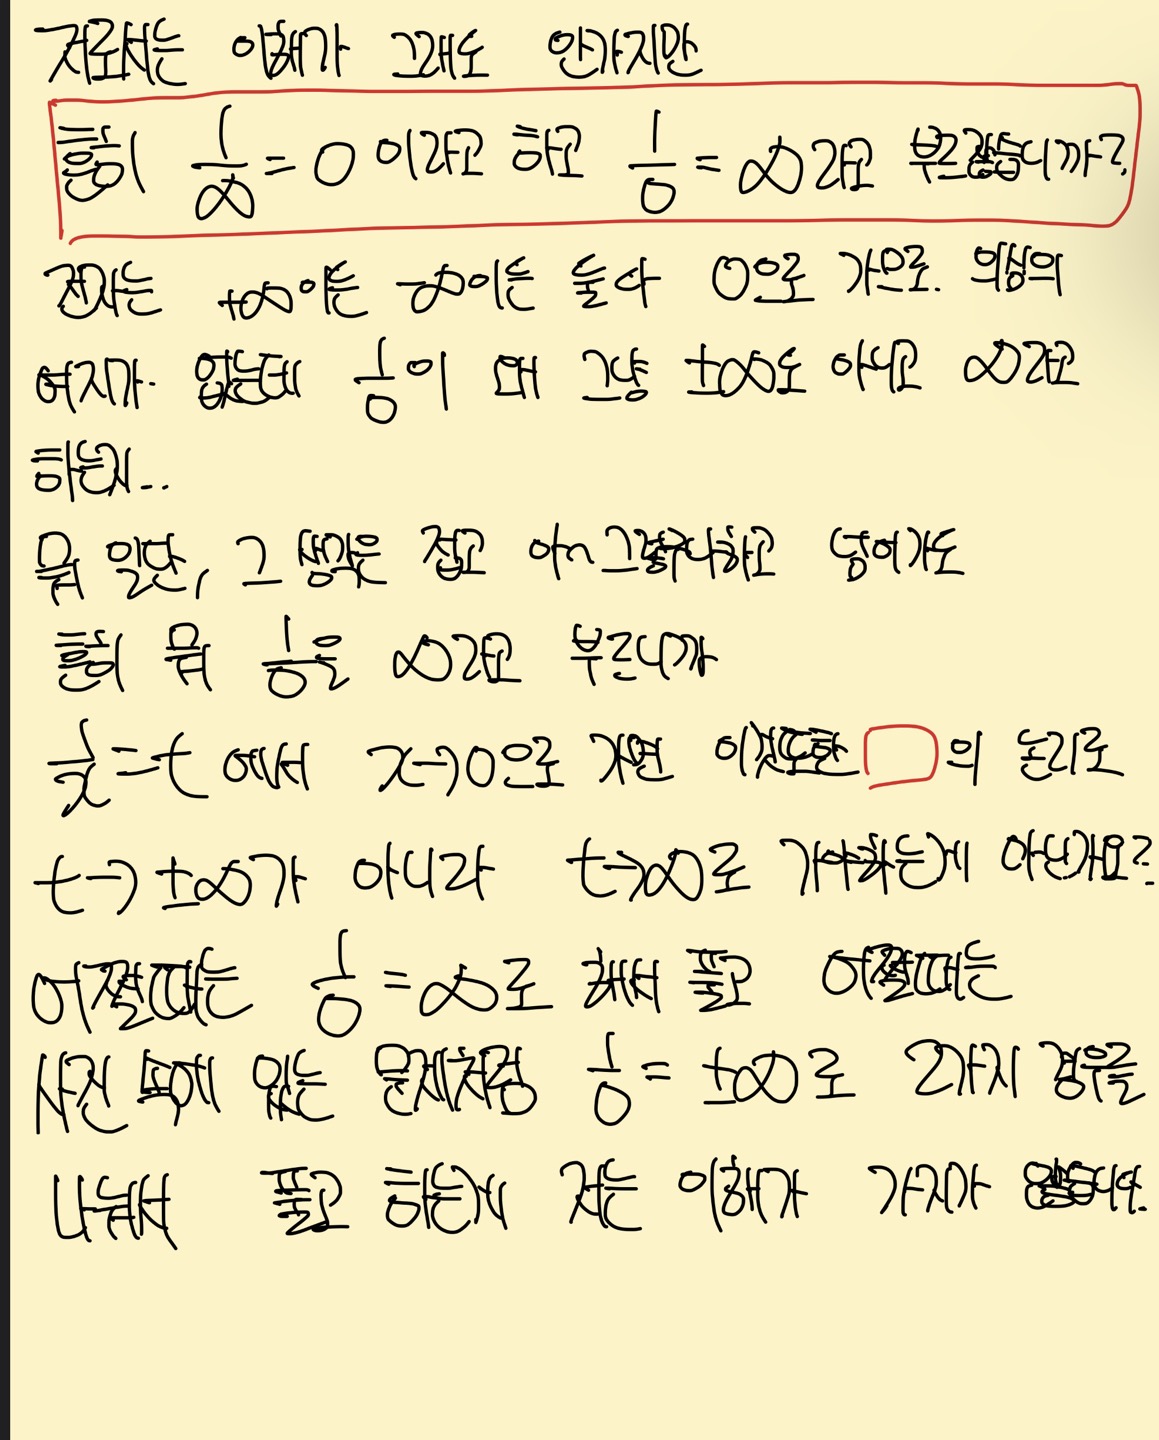 저로서는 이해가 그래도 안가지만
흔히 1/∞ = 0 이라고 하고 1/0 = ∞라고 부르잖습니까?
전자는 +∞이든 -∞이든 둘다 0으로 가므로. 의심의
여지가. 없는데 1/0이 왜 그냥 ±∞도 아니고 ∞라고
하는지...
뭐 일단, 그 생각은 접고 아~그렇구나하고 넘어가도
흔히 뭐 1/0을 ∞라고 부르니까
1/x = t 에서 x→0으로 가면 이것또한 □의 논리로
t→±∞가 아니라 t→∞로 가야하는게 아닌가요?
어쩔때는 1/0 = ∞로 해서 풀고 어쩔때는
사진 속에 있는 문제처럼 1/0 = ±∞로 2가지 경우를
나눠서 풀고 하는게 저는 이해가 가지가 않습니다.